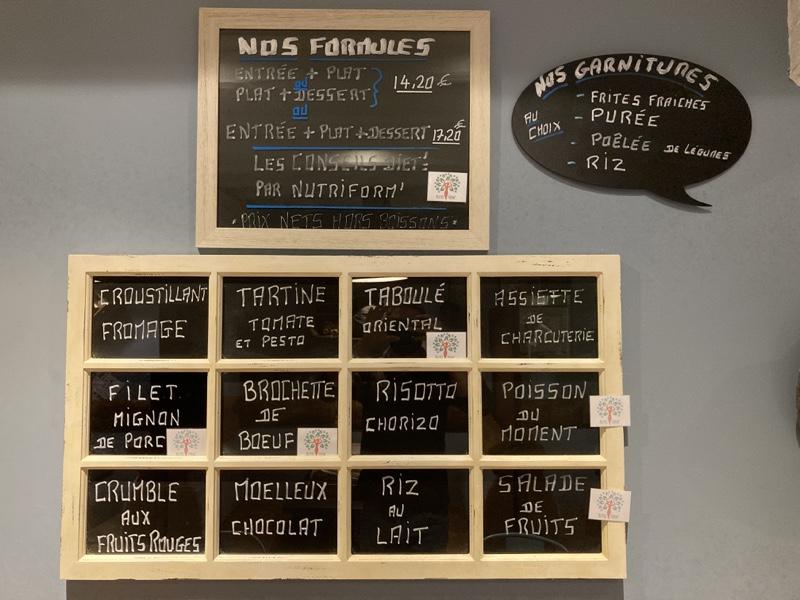 NOS FORMULES
ENTRÉE + PLAT
ou
PLAT + DESSERT
14,20 €
ou
ENTRÉE + PLAT + DESSERT 17,20 €
LES CONSEILS DIET!
PAR NUTRIFORM'
* PRIX NETS HORS BOISSONS *
NOS GARNITURES
AU CHOIX
- FRITES FRAICHES
- PURÉE
- POÊLÉE DE LÉGUMES
- RIZ
CROUSTILLANT
FROMAGE
TARTINE
TOMATE
ET PESTO
TABOULÉ
ORIENTAL
ASSIETTE
DE
CHARCUTERIE
FILET
MIGNON
DE PORC
BROCHETTE
DE
BOEUF
RISOTTO
CHORIZO
POISSON
DU
MOMENT
CRUMBLE
AUX
FRUITS ROUGES
MOELLEUX
CHOCOLAT
RIZ
AU
LAIT
SALADE
DE
FRUITS